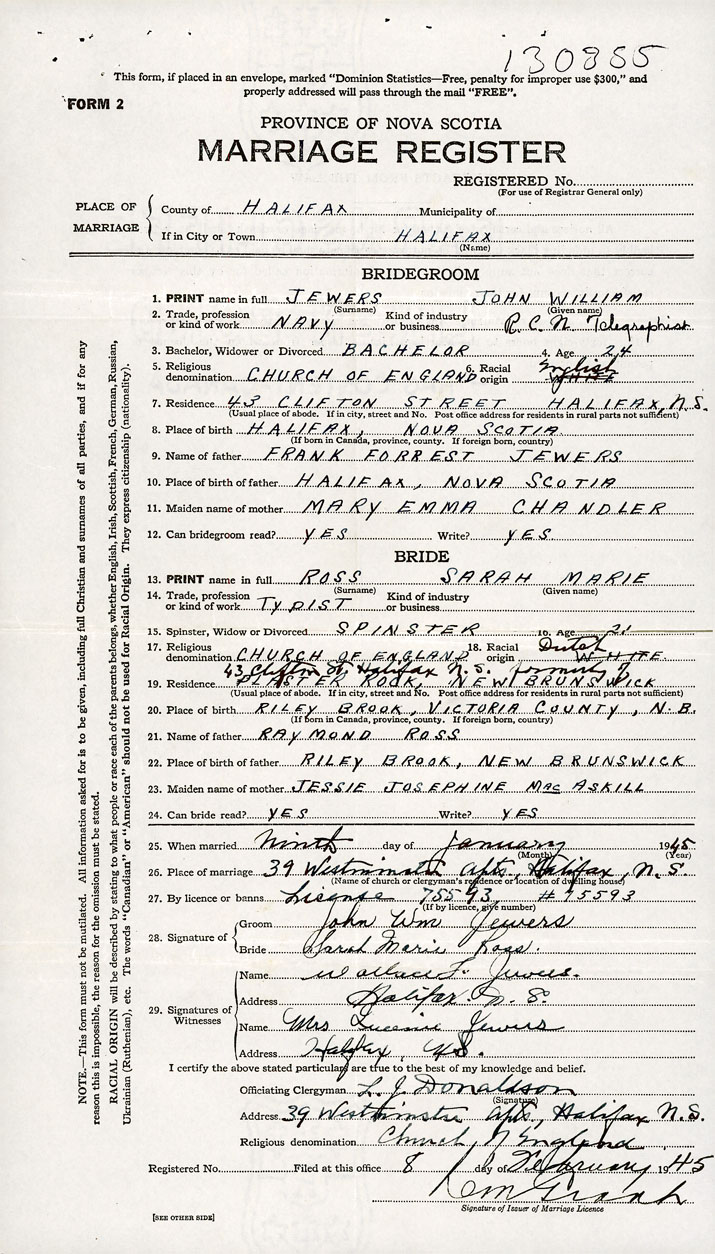 130855
This form, if placed in an envelope, marked "Dominion Statistics—Free, penalty for improper use $300," and
properly addressed will pass through the mail "FREE".
FORM 2
PROVINCE OF NOVA SCOTIA
MARRIAGE REGISTER
REGISTERED No.
(For use of Registrar General only)
PLACE OF MARRIAGE
County of HALIFAX Municipality of
If in City or Town HALIFAX
(Name)
BRIDEGROOM
1. PRINT name in full JEWERS JOHN WILLIAM
(Surname) (Given name)
2. Trade, profession or kind of work NAVY Kind of industry or business R.C.N. Telegraphist
3. Bachelor, Widower or Divorced BACHELOR 4. Age 24
5. Religious denomination CHURCH OF ENGLAND 6. Racial origin English WHITE
7. Residence 43 CLIFTON STREET HALIFAX, N.S.
(Usual place of abode. If in city, street and No. Post office address for residents in rural parts not sufficient)
8. Place of birth HALIFAX, NOVA SCOTIA
(If born in Canada, province, county. If foreign born, country)
9. Name of father FRANK FORREST JEWERS
10. Place of birth of father HALIFAX, NOVA SCOTIA
11. Maiden name of mother MARY EMMA CHANDLER
12. Can bridegroom read? YES Write? YES
BRIDE
13. PRINT name in full ROSS SARAH MARIE
(Surname) (Given name)
14. Trade, profession or kind of work TYPIST Kind of industry or business
15. Spinster, Widow or Divorced SPINSTER 16. Age 21
17. Religious denomination CHURCH OF ENGLAND 18. Racial origin Dutch WHITE
43 Clifton St. Halifax N.S. formerly
19. Residence PLASTER ROCK, NEW BRUNSWICK
(Usual place of abode. If in city, street and No. Post office address for residents in rural parts not sufficient)
20. Place of birth RILEY BROOK, VICTORIA COUNTY, N.B.
(If born in Canada, province, county. If foreign born, country)
21. Name of father RAYMOND ROSS
22. Place of birth of father RILEY BROOK, NEW BRUNSWICK
23. Maiden name of mother JESSIE JOSEPHINE MacASKILL
24. Can bride read? YES Write? YES
25. When married Ninth day of January 1945
(Month) (Year)
26. Place of marriage 39 Westminster Apts, Halifax, N.S.
(Name of church or clergyman's residence or location of dwelling house)
27. By licence or banns License 75593 #75593
(If by licence, give number)
28. Signature of
Groom John Wm Jewers
Bride Sarah Marie Ross.
29. Signatures of Witnesses
Name Wallace F. Jewers.
Address Halifax. N.S.
Name Mrs Jewers
Address Halifax, N.S.
I certify the above stated particulars are true to the best of my knowledge and belief.
Officiating Clergyman L. J. Donaldson
(Signature)
Address 39 Westminster Apts, Halifax N.S.
Religious denomination Church of England
Registered No. Filed at this office 8 day of February 1945
Signature of Issuer of Marriage Licence
[SEE OTHER SIDE]
NOTE.—This form must not be mutilated. All information asked for is to be given, including full Christian and surnames of all parties, and if for any
reason this is impossible, the reason for the omission must be stated.
RACIAL ORIGIN will be described by stating to what people or race each of the parents belongs, whether English, Irish, Scottish, French, German, Russian,
Ukrainian (Ruthenian), etc. The words "Canadian" or "American" should not be used for Racial Origin. They express citizenship (nationality).